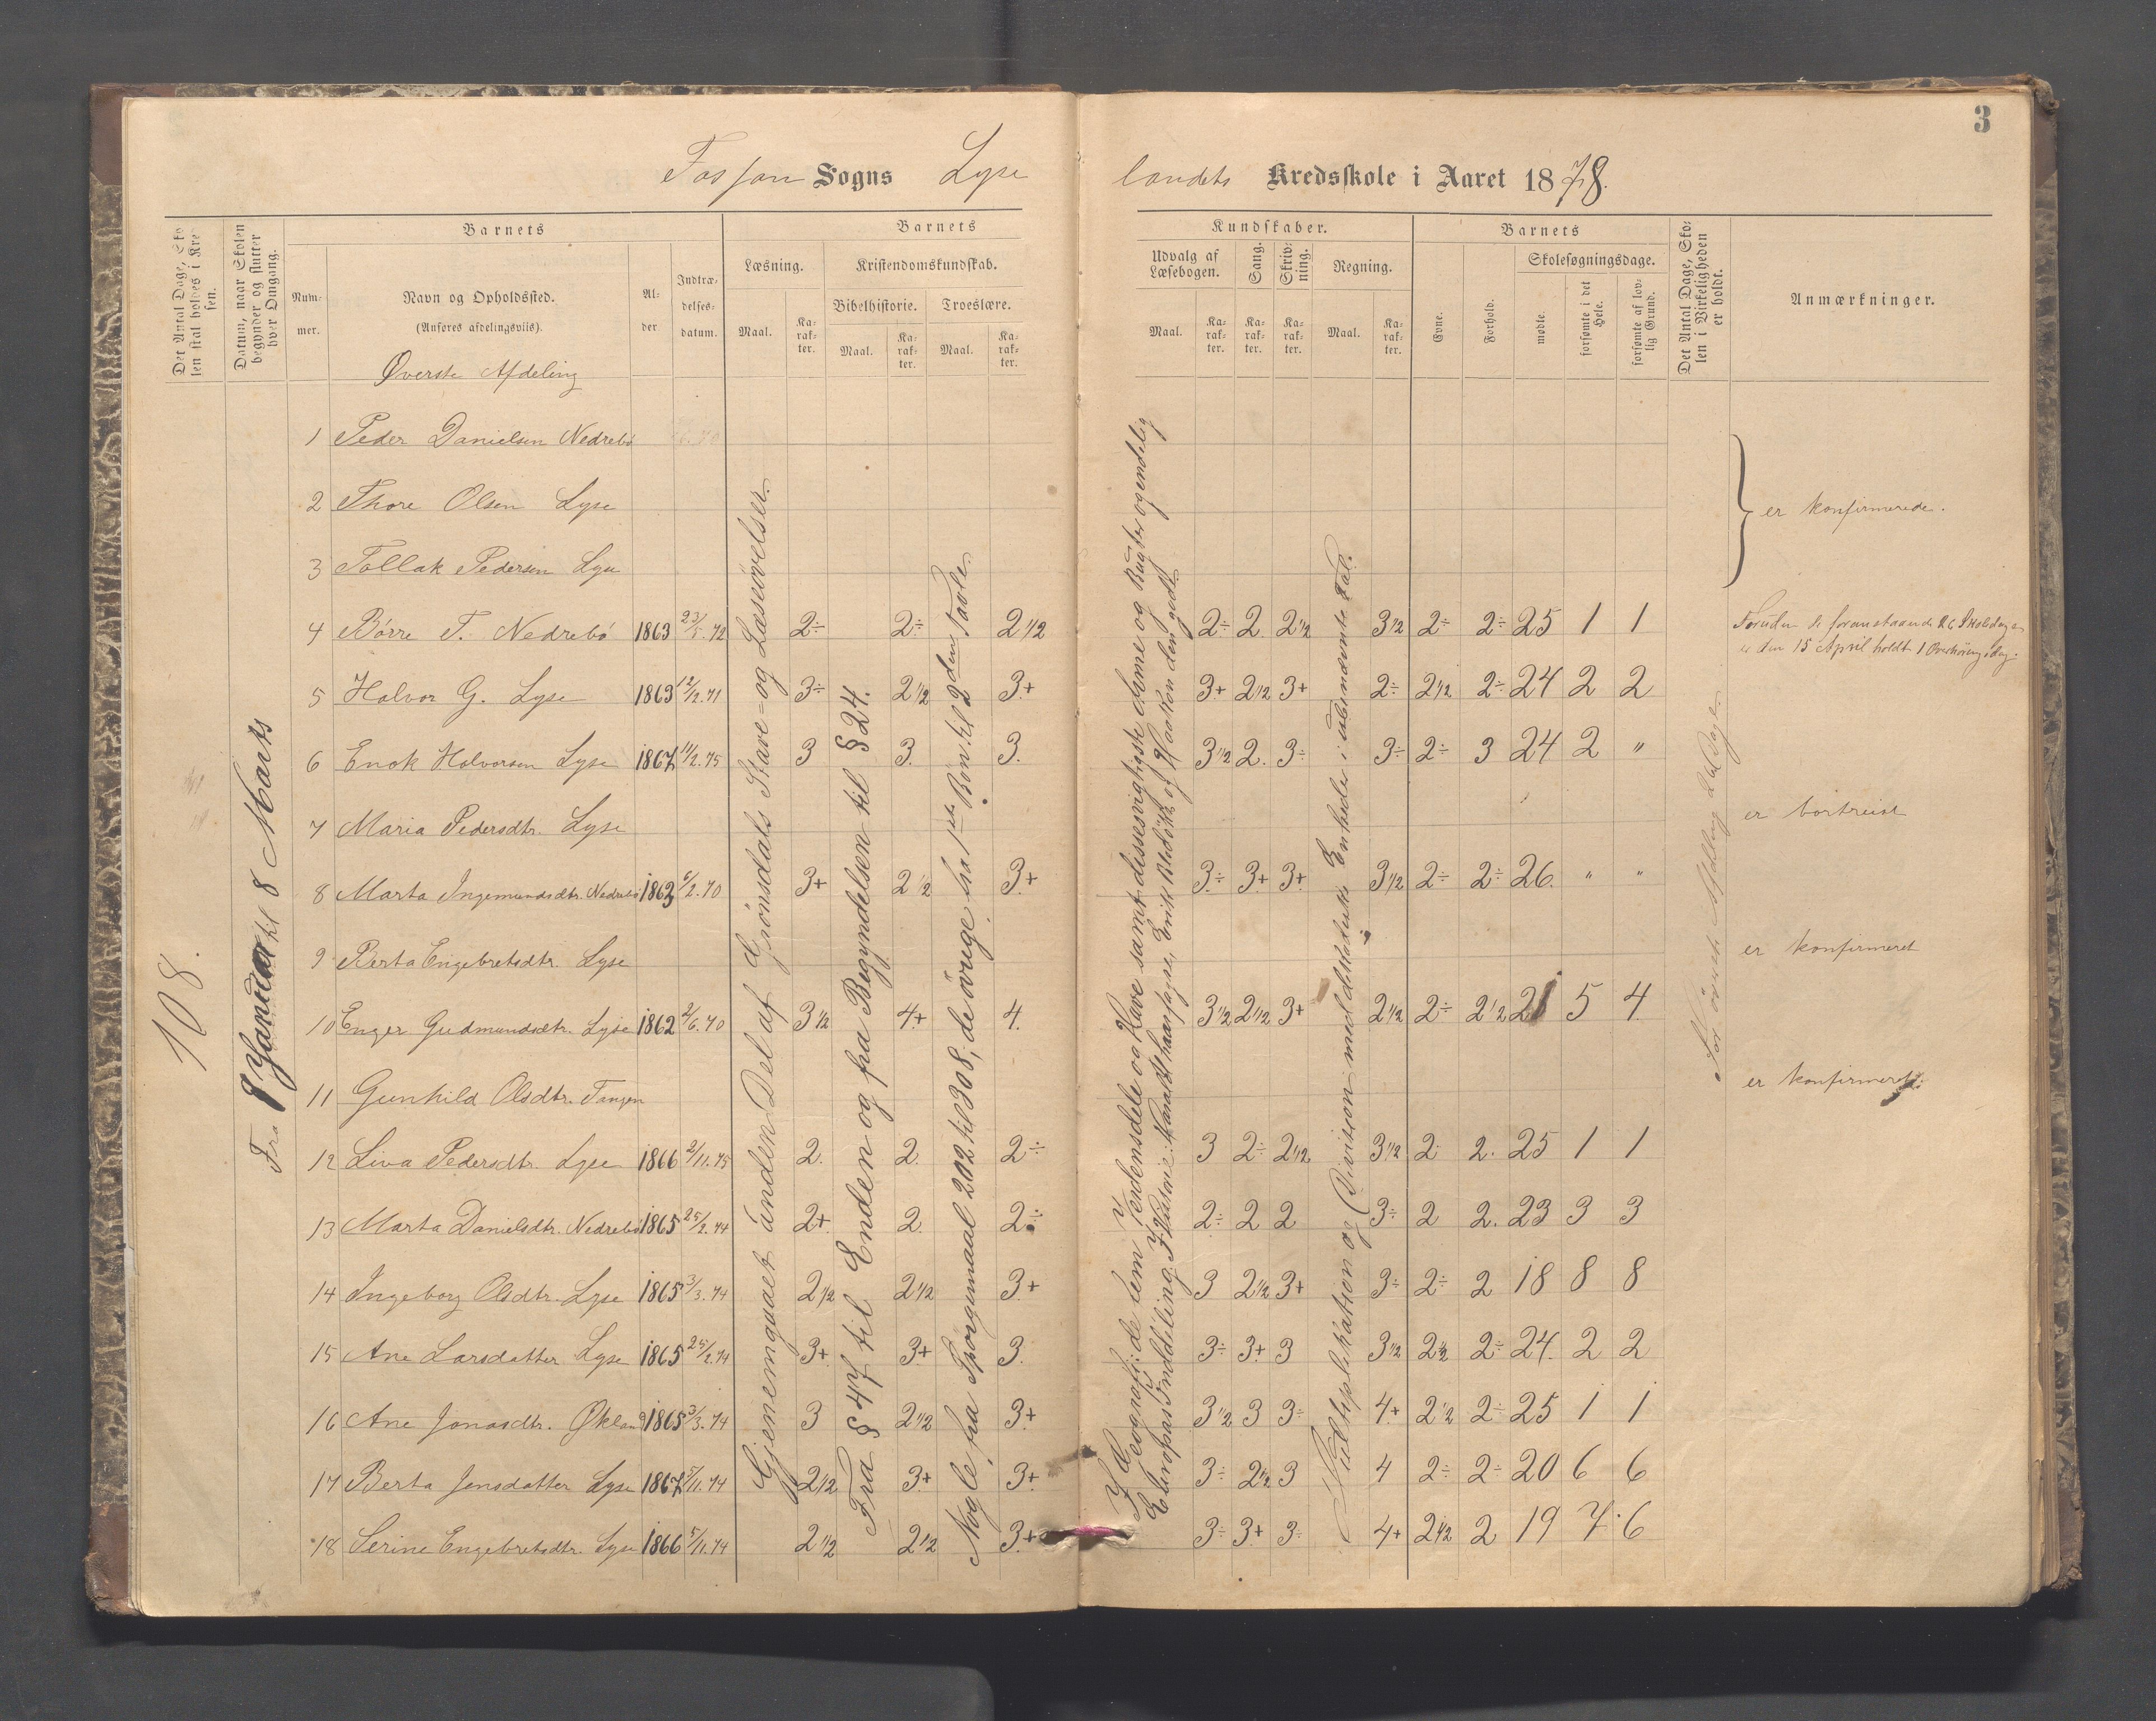 3
Fossan Sogns Lyse
landets Kredsskole i Aaret 1878.
Det Antal Dage, Skolen skal holdes i Kredsen.
Datum, naar Skolen begynder og slutter hver Omgang.
Barnets
Nummer.
Navn og Opholdssted.
(Anføres afdelingsviis).
Alder
Indtrædelsesdatum.
Barnets
Læsning.
Maal.
Karakter.
Kristendomskundskab.
Bibelhistorie.
Maal.
Karakter.
Troeslære.
Maal.
Karakter.
Kundskaber.
Udvalg af Læsebogen.
Maal.
Karakter.
Sang.
Karakter.
Skrivning.
Karakter.
Regning.
Maal.
Karakter.
Barnets
Evne.
Forhold.
Skolesøgningsdage.
mødte.
forsømte i det Hele.
forsømte af lovlig Grund.
Det Antal Dage, Skolen i Virkeligheden er holdt.
Anmærkninger.
Øverste Afdeling
108.
Fra 7 Januar til 8 Marts
Gjenemgaaet anden Del af Grönsdals Stave- og Læseövelser.
Fra § 47 til Enden og fra Begyndelsen til § 24.
Nogle fra Spörgsmaal 202 til 308; de övrige fra 1ste Bön til 2den Tavle.
I Geografi: de fem Verdensdele og Have samt disses vigtigste Arme og Bugter og endelig
Europas Inddeling. I Historie: Harald Haarfagre, Erik Blodöks og Haakon den gode.
Multiplikation og Division med dekadiske Enheder i ubenævnte Tal.
For överste Afdeling 26 Dage.
1 Peder Danielsen Nedrebö
2 Thore Olsen Lyse
er konfirmerede.
3 Tollak Pedersen Lyse
4 Börre T. Nedrebö 1863 23/5.72 2÷ 2÷ 2 1/2 2÷ 2 2 1/2 3 1/2 2÷ 2÷ 25 1 1
Foruden de foranstaaende 26 Skoledage
er den 15 April holdt 1 Overhöringsdag.
5 Halvor G. Lyse 1863 12/2.71 3÷ 2 1/2 3+ 3+ 2 1/2 3+ 2÷ 2 1/2 2÷ 24 2 2
6 Enok Halvorsen Lyse 1867 11/2.75 3 3. 3. 3 1/2 2. 3÷ 3÷ 2÷ 3 24 2 "
7 Maria Pedersdtr. Lyse er bortreist
8 Marta Ingemundsdtr. Nedrebö 1863 6/2.70 3+ 2 1/2 3+ 3÷ 3+ 3+ 3 1/2 2÷ 2÷ 26. " "
9 Berta Engebretsdtr. Lyse er konfirmeret
10 Enger Gudmundsdtr. Lyse 1862 2/6.70 3 1/2 4+ 4. 3 1/2 2 1/2 3+ 2 1/2 2÷ 2 1/2 21 5 4
11 Gunhild Olsdtr. Tangen er konfirmeret.
12 Liva Pedersdtr. Lyse 1866 2/11.75 2. 2. 2÷ 3 2÷ 2 1/2 3 1/2 2 2. 25 1 1
13 Marta Danielsdtr. Nedrebö 1865 25/2.74 2+ 2. 2÷ 2÷ 2 2 3÷ 2 2. 23 3 3
14 Ingeborg Olsdtr. Lyse 1865 3/3.74 2 1/2 2 1/2 3+ 3 2 1/2 3+ 3÷ 2÷ 2 18 8 8
15 Ane Larsdatter Lyse 1865 25/2.74 3+ 3+ 3. 3÷ 3+ 3 3 1/2 2 1/2 2÷ 24. 2 2
16 Ane Jonasdtr. Økland 1865 3/3.74 3 2 1/2 3+ 3 1/2 3 3÷ 4+ 2 1/2 2÷ 25 1 1
17 Berta Jensdatter Lyse 1867 5/11.74 2 1/2 3+ 3+ 3÷ 2 1/2 3 4 2÷ 2÷ 20 6 6
18 Serine Engebretsdtr. Lyse 1866 5/11.74 2 1/2 2 1/2 3+ 3÷ 3+ 3÷ 4+ 2 1/2 2 19 7 6